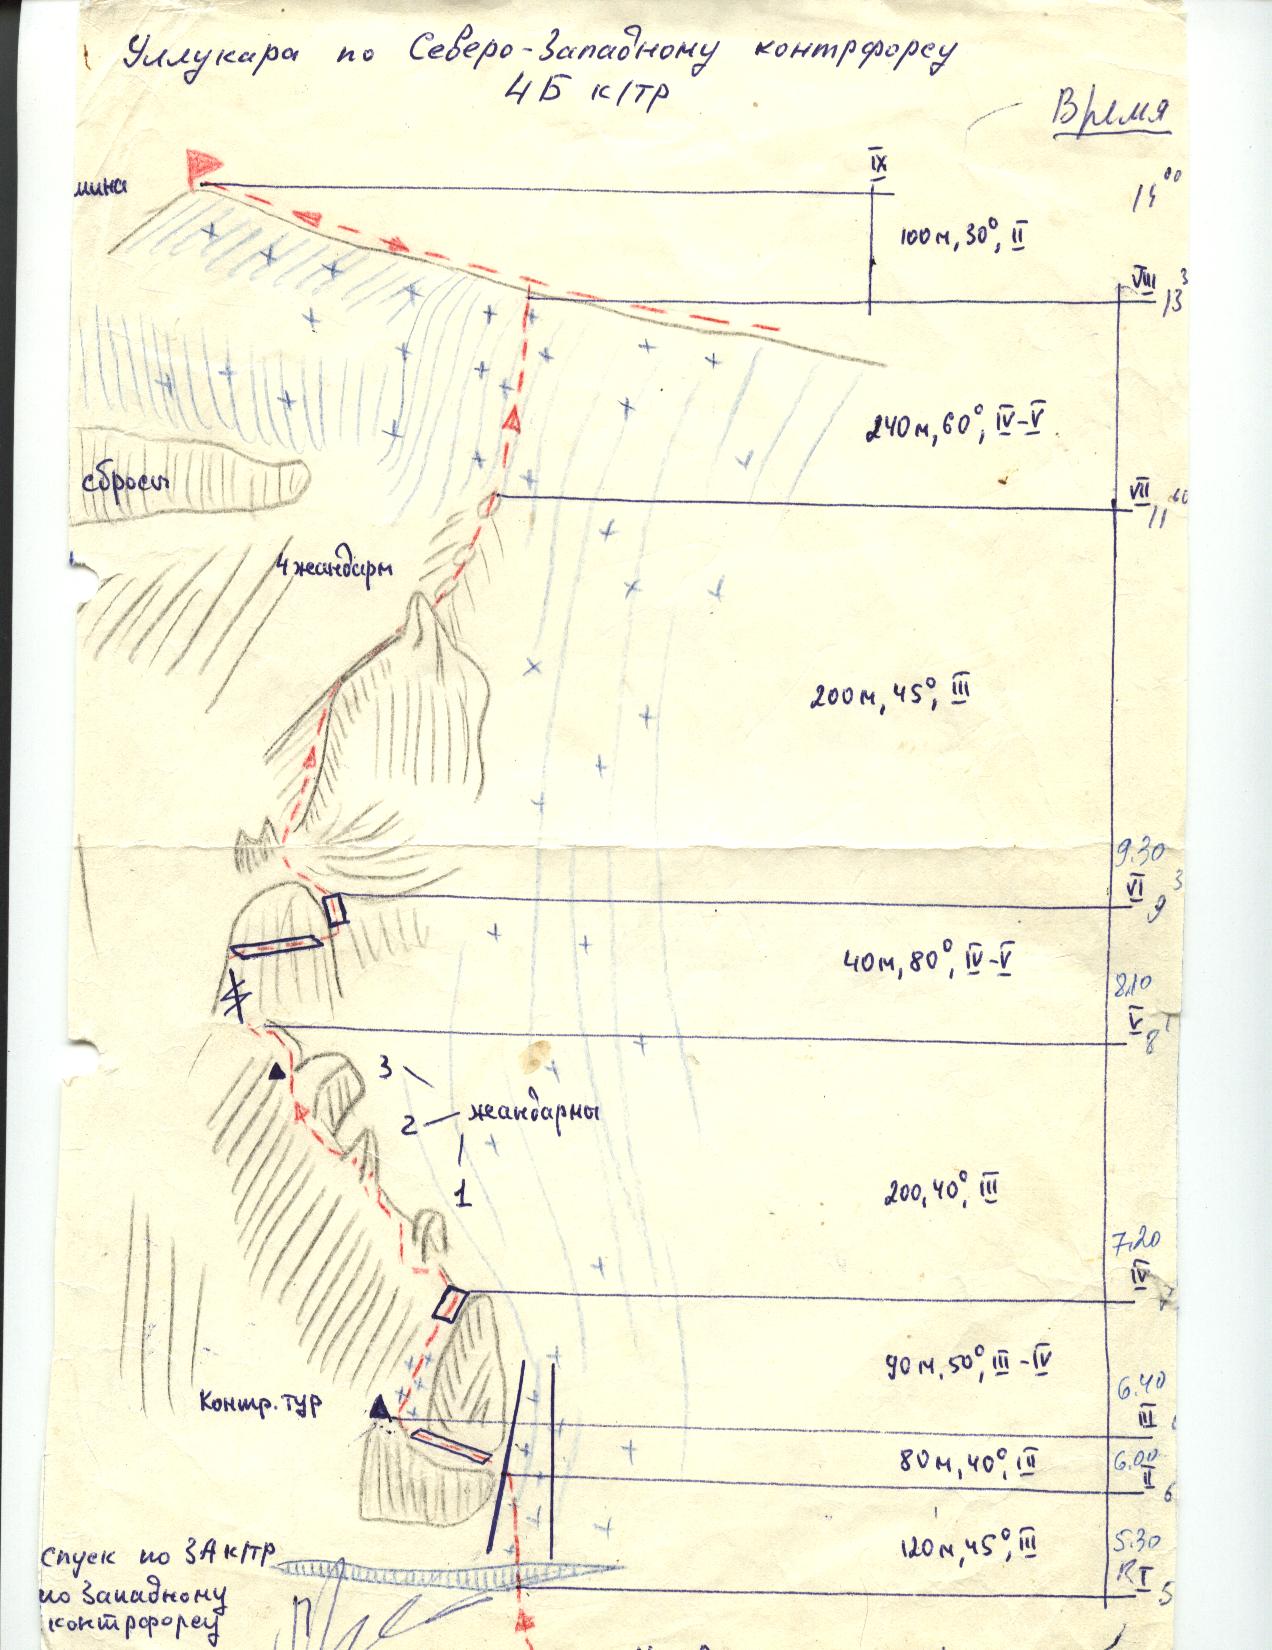 Уллукара по Северо-Западному контрфорсу
4Б к/тр
Время
IX
14 00
100м, 30°, II
VIII
13 3
240м, 60°, IV-V
сбросы
VII
11
4 жандарм
200м, 45°, III
9.30
VI
9 3
40м, 80°, IV-V
8.10
V
8 1
3
2
жандармы
1
200, 40°, III
7.20
IV
90м, 50°, III-IV
6.40
III
Контр. тур
80м, 40°, III
6.00
II
6
120м, 45°, III
5.30
R I
5
спуск по 3А к/тр
по Западному
контрфорсу